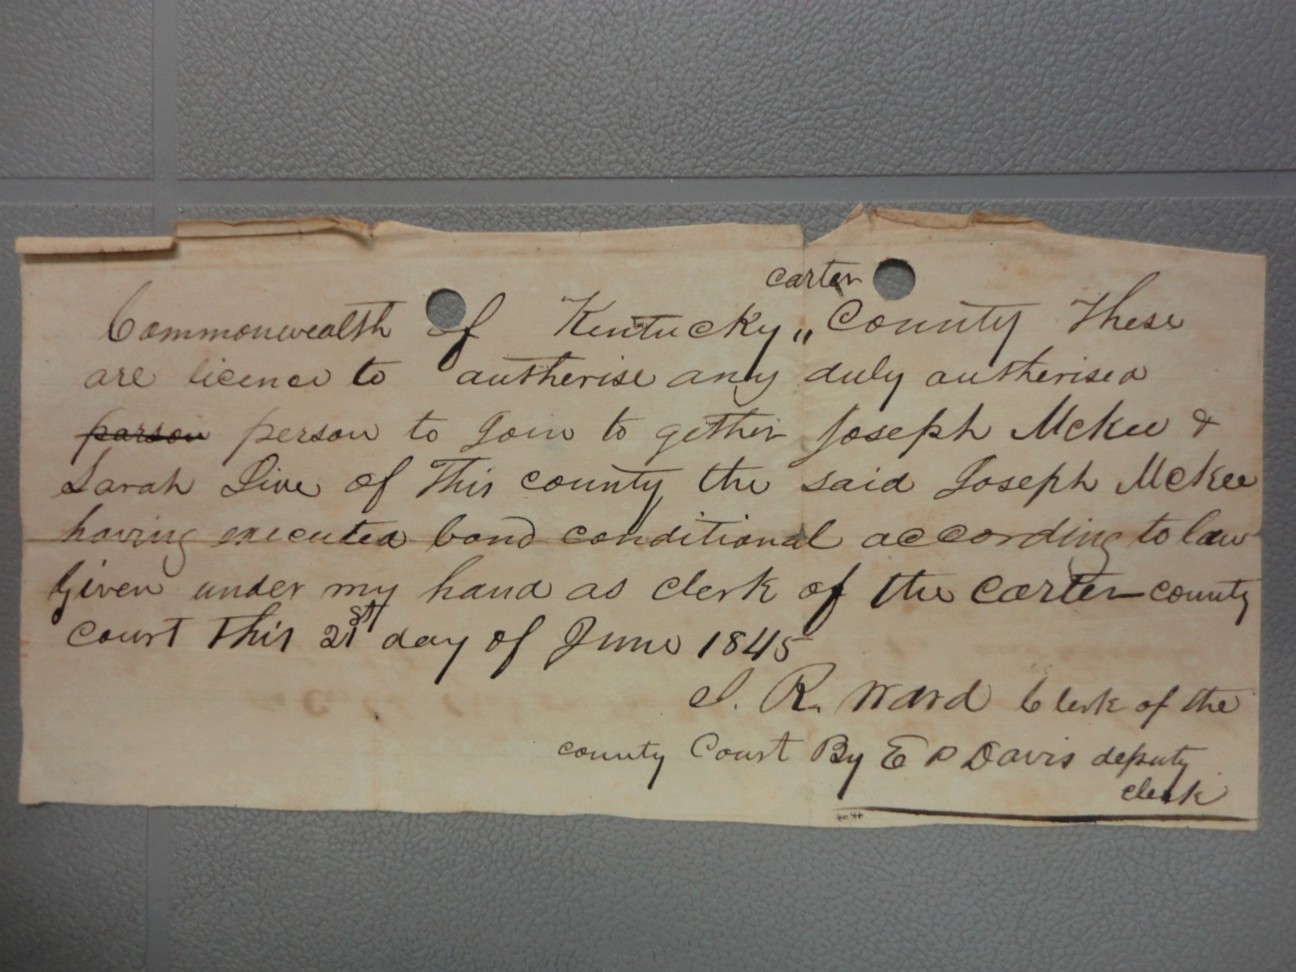 carter
Commonwealth of Kentucky „ County These
are licence to autherise any duly autherised
parson person to Join to gether Joseph McKee &
Sarah of This county the said Joseph McKee
having executed bond conditional according to law
Given under my hand as clerk of the Carter county
court this 21st day of June 1845
R. Ward Clerk of the
county Court By E P Davis deputy
clerk